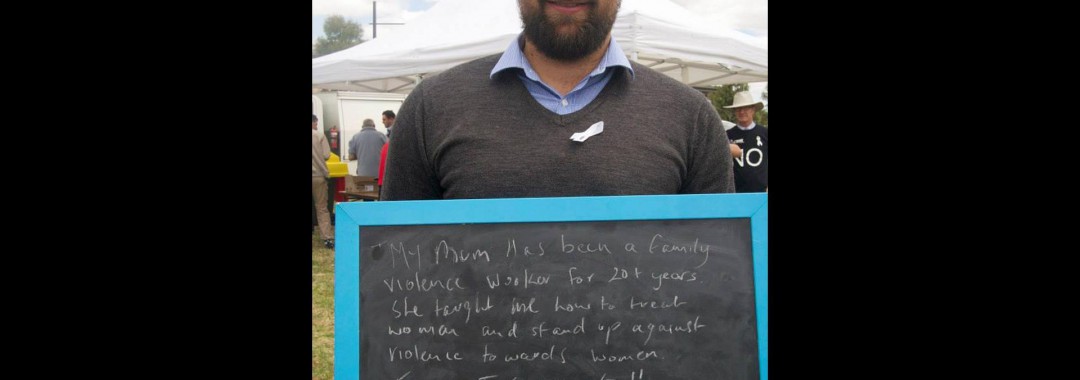 "My Mum Has been a family
violence worker for 20+ years.
She taught me how to treat
women and stand up against
violence towards women.
NO